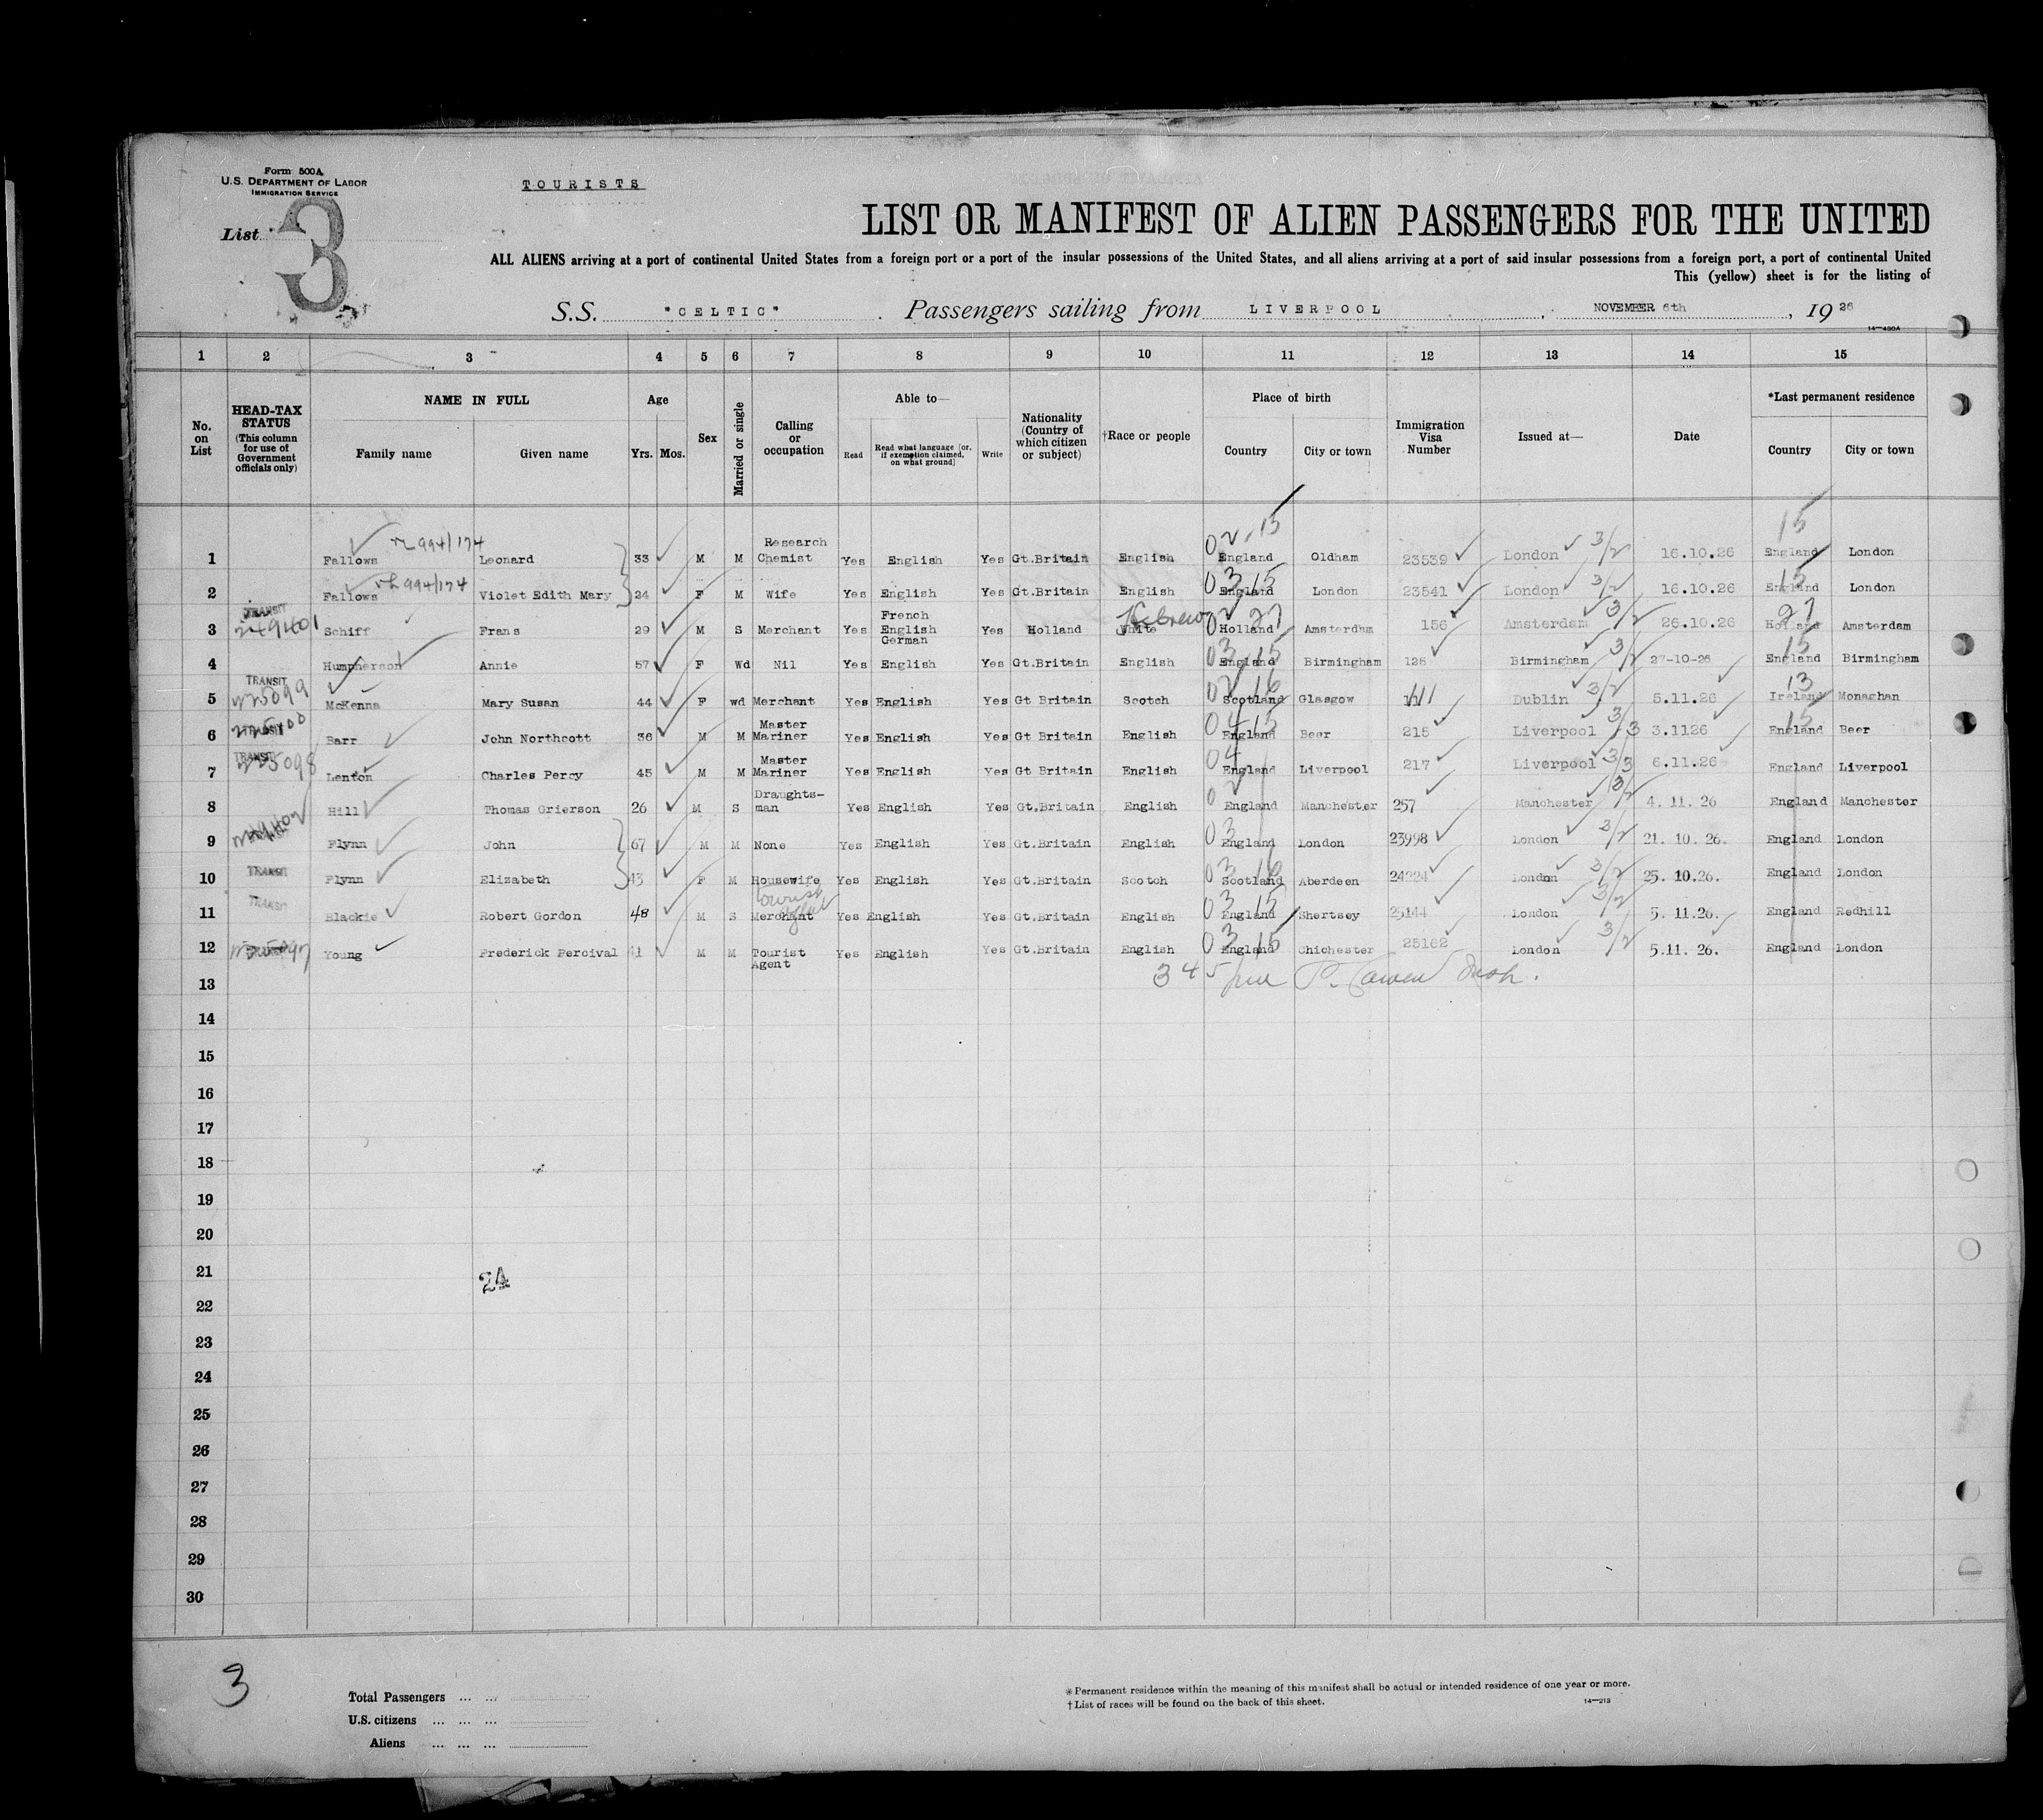 Form 500A
U.S. DEPARTMENT OF LABOR
IMMIGRATION SERVICE
TOURISTS
List 3
LIST OR MANIFEST OF ALIEN PASSENGERS FOR THE UNITED
ALL ALIENS arriving at a port of continental United States from a foreign port or a port of the insular possessions of the United States, and all aliens arriving at a port of said insular possessions from a foreign port, a port of continental United
This (yellow) sheet is for the listing of
S.S. "CELTIC" Passengers sailing from LIVERPOOL, NOVEMBER 6th, 1926
14—430A
1 2 3 4 5 6 7 8 9 10 11 12 13 14 15
No. on List
HEAD-TAX STATUS (This column for use of Government officials only)
NAME IN FULL
Family name Given name
Age
Yrs. Mos.
Sex
Married or single
Calling or occupation
Able to—
Read Read what language [or, if exemption claimed, on what ground] Write
Nationality (Country of which citizen or subject)
†Race or people
Place of birth
Country City or town
Immigration Visa Number
Issued at—
Date
*Last permanent residence
Country City or town
1 Fallows 994/174 Leonard 33 M M Research Chemist Yes English Yes Gt.Britain English 02 15 England Oldham 23539 London 3/2 16.10.26 15 England London
2 Fallows 994/174 Violet Edith Mary 24 F M Wife Yes English Yes Gt.Britain English 03 15 England London 23541 London 3/2 16.10.26 15 England London
3 TRANSIT 249401 Schiff Frans 29 M S Merchant Yes French English German Yes Holland White Hebrew 02 27 Holland Amsterdam 156 Amsterdam 3/2 26.10.26 27 Holland Amsterdam
4 Humpherson Annie 57 F Wd Nil Yes English Yes Gt.Britain English 03 15 England Birmingham 126 Birmingham 3/2 27-10-26 15 England Birmingham
5 TRANSIT 225099 McKenna Mary Susan 44 F wd Merchant Yes English Yes Gt Britain Scotch 02 16 Scotland Glasgow Dublin 3/2 5.11.26 13 Ireland Monaghan
6 TRANSIT Barr John Northcott 36 M M Master Mariner Yes English Yes Gt Britain English 04 15 England Beer 215 Liverpool 3/3 3.1126 15 England Beer
7 TRANSIT 225098 Lenton Charles Percy 45 M M Master Mariner Yes English Yes Gt Britain English 04 England Liverpool 217 Liverpool 3/3 6.11.26 England Liverpool
8 Hill Thomas Grierson 26 M S Draughts-man Yes English Yes Gt.Britain English 02 England Manchester 257 Manchester 3/2 4. 11. 26 England Manchester
9 Flynn John 67 M M None Yes English Yes Gt.Britain English 03 England London 23998 London 3/2 21. 10. 26. England London
10 TRANSIT Flynn Elizabeth 43 F M Housewife Yes English Yes Gt.Britain Scotch 03 16 Scotland Aberdeen 24224 London 3/2 25. 10.26. England London
11 TRANSIT Blackie Robert Gordon 48 M S Merchant tourist Yes English Yes Gt.Britain English 03 15 England Shertsey 25144 London 3/2 5. 11.26. England Redhill
12 Young Frederick Percival 41 M M Tourist Agent Yes English Yes Gt.Britain English 03 15 England Chichester 25162 London 3/2 5.11. 26. England London
13 345
14
15
16
17
18
19
20
21 24
22
23
24
25
26
27
28
29
30
3
Total Passengers ... ...
U.S. citizens ... ... ...
Aliens ... ... ...
* Permanent residence within the meaning of this manifest shall be actual or intended residence of one year or more.
† List of races will be found on the back of this sheet.
14—213